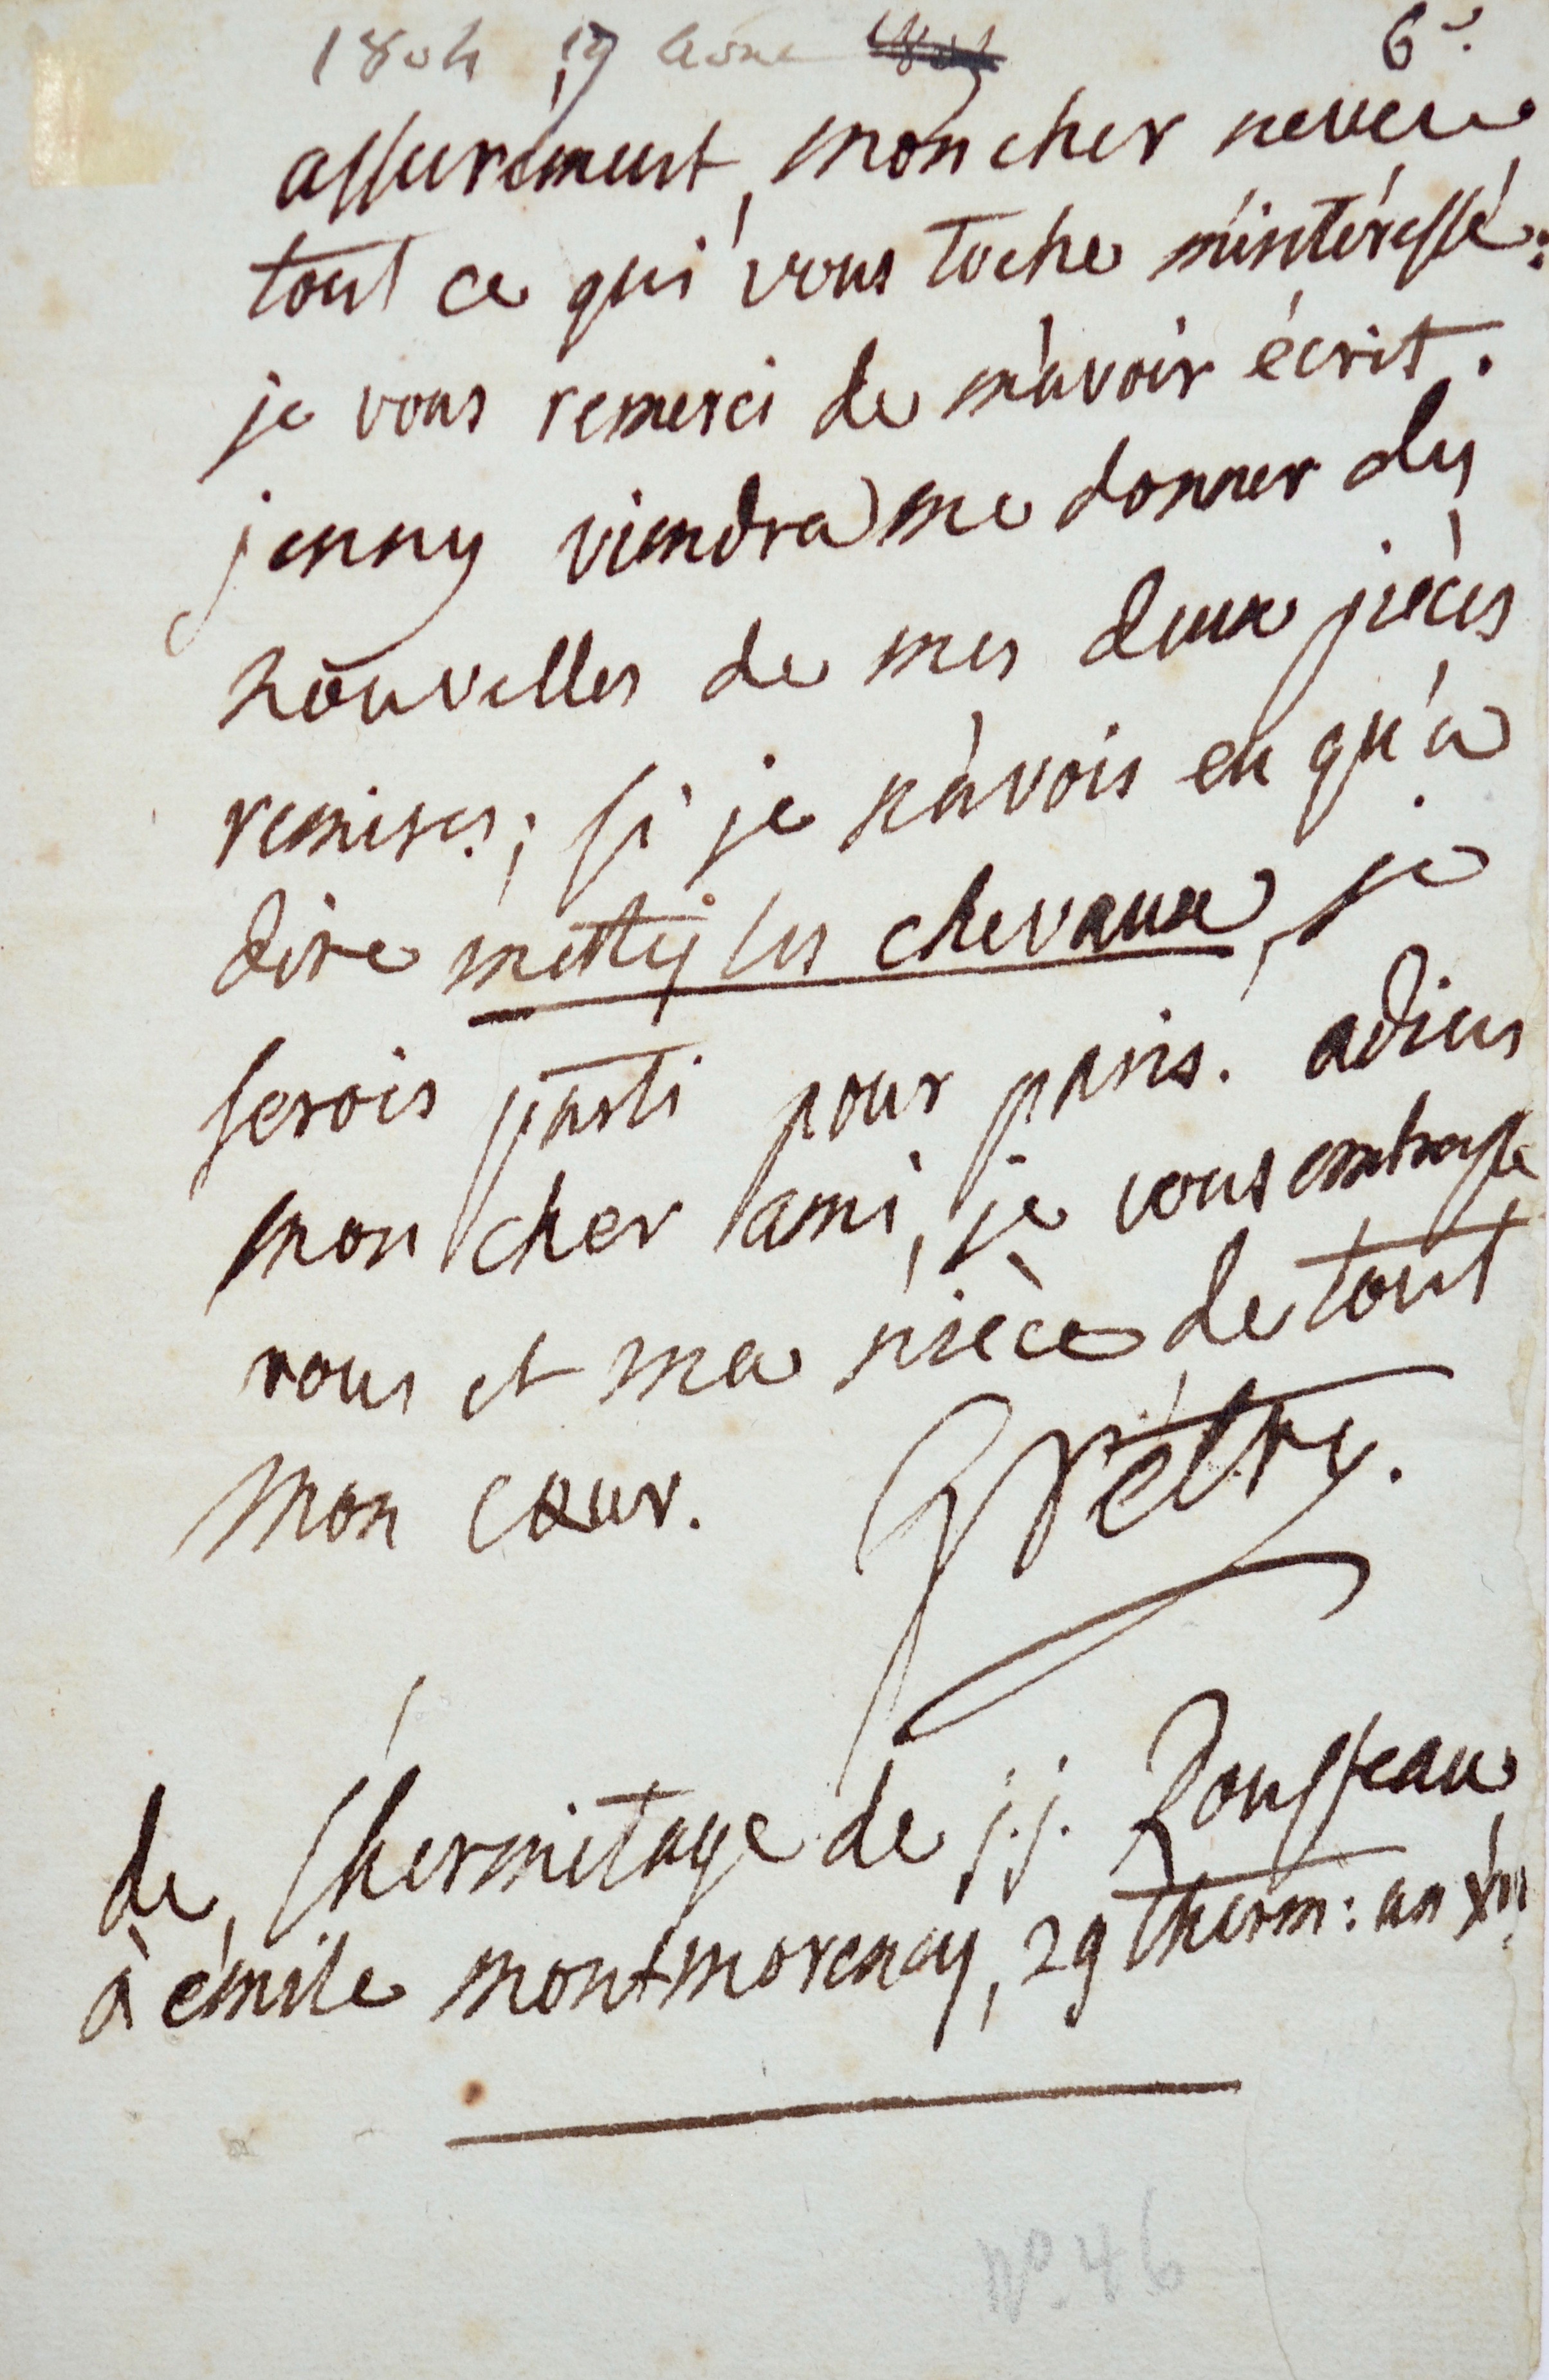 1804 17 Aout
6e.
assurément, mon cher neveu
tout ce qui vous toche m'intéresse:
je vous remerci de m'avoir écrit.
jenny viendra me donner des
nouvelles de mes deux pièces
remises; si je n'avois eu qu'à
dire mettez les chevaux, je
serois parti pour paris. adieu
mon cher ami, je vous embrasse
vous et ma nièce de tout
mon cœur. Grétry.
de l'hermitage de j.j. Rousseau
à émile montmorency, 29 therm: an XII
No. 46